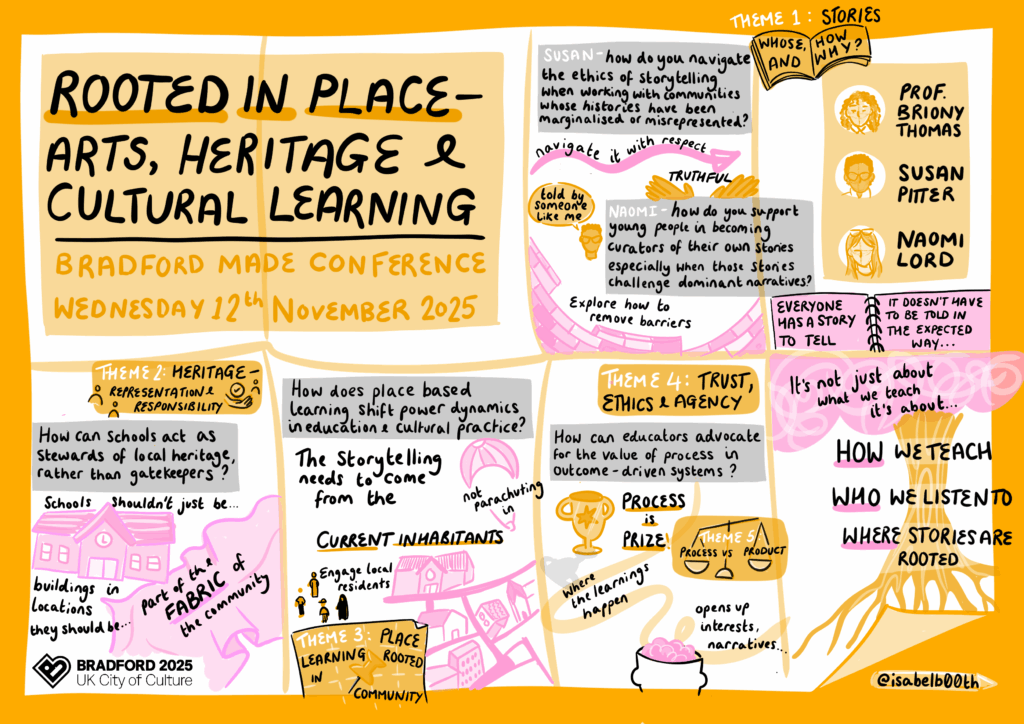 ROOTED IN PLACE-
ARTS, HERITAGE &
CULTURAL LEARNING
BRADFORD MADE CONFERENCE
WEDNESDAY 12th NOVEMBER 2025
THEME 1: STORIES
WHOSE, HOW
AND WHY?
PROF.
BRIONY
THOMAS
SUSAN
PITTER
NAOMI
LORD
SUSAN - how do you navigate
the ethics of storytelling
when working with communities
whose histories have been
marginalised or misrepresented?
navigate it with respect
TRUTHFUL
told by
someone
like me
NAOMI - how do you support
young people in becoming
curators of their own stories
especially when those stories
challenge dominant narratives?
Explore how to
remove barriers
EVERYONE
HAS A STORY
TO TELL
IT DOESN'T HAVE
TO BE TOLD IN
THE EXPECTED
WAY...
THEME 2: HERITAGE-
REPRESENTATION &
RESPONSIBILITY
How can Schools act as
Stewards of local heritage,
rather than gatekeepers?
Schools shouldn't just be...
buildings in
locations
they should be...
part of the
FABRIC of
the community
BRADFORD 2025
UK City of Culture
How does place based
learning shift power dynamics
in education & cultural practice?
The Storytelling
needs to come
from the
CURRENT INHABITANTS
not parachuting
in
Engage local
residents
THEME 3: PLACE
LEARNING ROOTED
IN COMMUNITY
THEME 4: TRUST,
ETHICS & AGENCY
How can educators advocate
for the value of process in
outcome-driven systems?
PROCESS
is
PRIZE!
THEME 5
PROCESS VS PRODUCT
Where
the learnings
happen
opens up
interests,
narratives...
It's not just about
what we teach
it's about...
HOW WE TEACH
WHO WE LISTEN TO
WHERE STORIES ARE
ROOTED
@isabelb00th